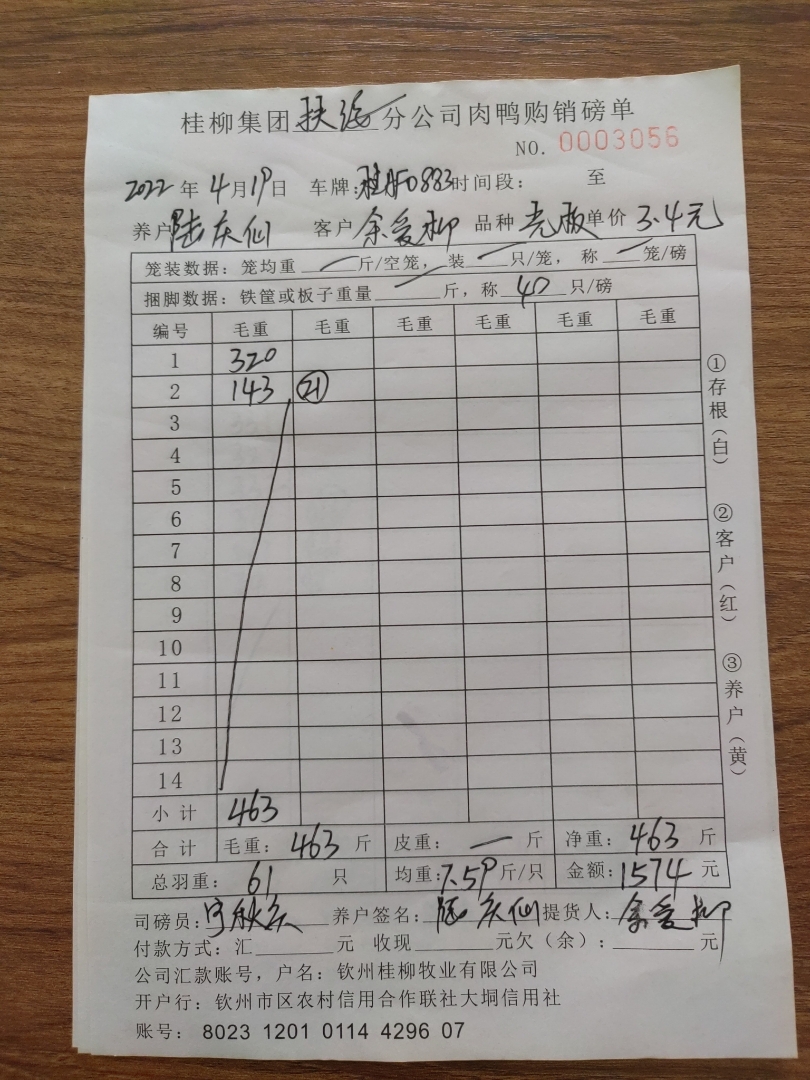 桂柳集团扶绥分公司肉鸭购销磅单
NO. 0003056
2022年4月19日 车牌:桂A50883时间段: 至
养户陆庆仙 客户余爱柳 品种壳板单价3.4元
笼装数据:笼均重 — 斤/空笼,装 — 只/笼,称 — 笼/磅
捆脚数据:铁筐或板子重量 — 斤,称 40 只/磅
编号 毛重 毛重 毛重 毛重 毛重 毛重
1 320
2 143 21
3
4
5
6
7
8
9
10
11
12
13
14
小计 463
合计 毛重:463斤 皮重:—斤 净重:463斤
总羽重:61只 均重:7.59斤/只 金额:1574元
司磅员: 养户签名:陆庆仙 提货人:余爱柳
付款方式:汇 元 收现 元欠(余): 元
公司汇款账号,户名:钦州桂柳牧业有限公司
开户行:钦州市区农村信用合作联社大垌信用社
账号:8023 1201 0114 4296 07
①存根(白)
②客户(红)
③养户(黄)